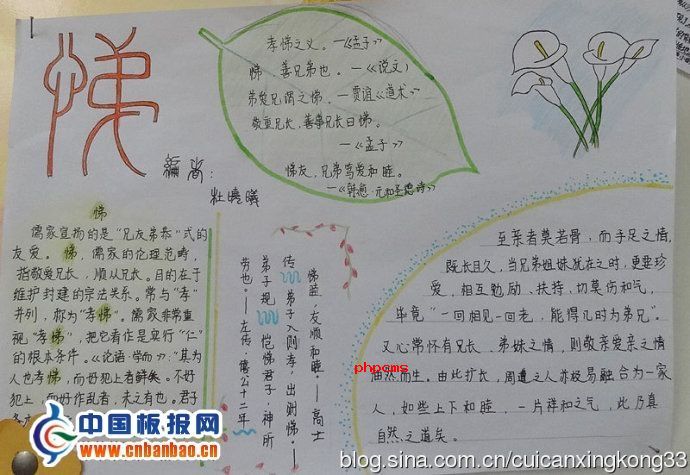 悌
孝悌之义。—《孟子》
悌 善兄弟也。—《说文》
弟爱兄谓之悌。—贾谊《道术》
敬重兄长,善事兄长曰悌。
—《孟子》
悌友,兄弟笃爱和睦。
—《韩愈·元和圣德诗》
编者:
杜晓曦
悌
儒家宣扬的是“兄友弟恭”式的
友爱。悌,儒家的伦理范畴,
指敬爱兄长,顺从兄长。目的在于
维护封建的宗法关系。常与“孝”
并列,称为“孝悌”。儒家非常重
视“孝悌”,把它看作是实行“仁”
的根本条件。《论语·学而》:“其为
人也孝悌,而好犯上者鲜矣。不好
犯上,而好作乱者,未之有也。君子
悌益,友顺和睦。——高士
传 弟子入则孝,出则悌。——
弟子规 恺悌君子,神所
劳也。——左传·僖公十二年
至亲者莫若骨,而手足之情,
既长且久,当兄弟姐妹犹在之时,更要珍
爱,相互勉励、扶持,切莫伤和气,
毕竟“一回相见一回老,能得几时为弟兄”。
又心常怀有兄长、弟妹之情,则敬亲爱亲之情
油然而生。由此扩长,周遭之人亦极易融合为一家
人,如些上下和睦,一片祥和之气,此乃真
自然之道矣。
phpcms
中国板报网
www.cnbanbao.cn
blog.sina.com.cn/cuicanxingkong33